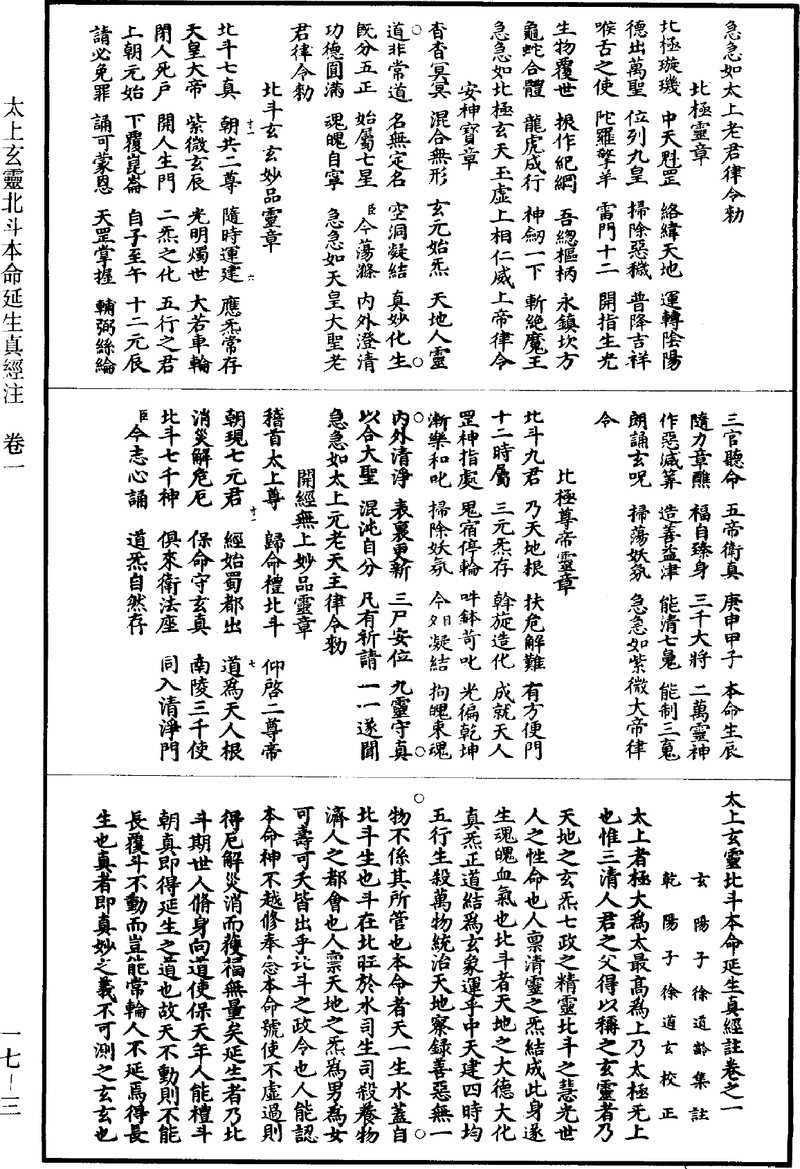 急急如太上老君律令勑
北極靈章
北極璇璣　中天魁罡　絡緯天地　運轉陰陽
德出萬聖　位列九皇　掃除惡穢　普降吉祥
喉舌之使　陀羅擎羊　雷門十二　開指生光
生物覆世　根作紀綱　吾總樞柄　永鎮坎方
龜蛇合體　龍虎成行　神劒一下　斬絕魔王
急急如北極玄天玉虛上相仁威上帝律令
安神寶章
杳杳冥冥　混合無形　玄元始炁　天地人靈
道非常道　名無定名　空洞凝結　真妙化生
旣分五正　始屬七星　臣今蕩滌　內外澄清
功德圓滿　魂魄自寧　急急如天皇大聖老
君律令勑
北斗玄玄妙品靈章
北斗七真　朝共二尊　隨時運建　應炁常存
天皇大帝　紫微玄辰　光明燭世　大若車輪
閉人死戶　開人生門　二炁之化　五行之君
上朝元始　下覆崑崙　自子至午　十二元辰
請必免罪　誦可蒙恩　天罡掌握　輔弼絲綸
三官聽命　五帝衛真　庚申甲子　本命生辰
隨力章醮　福自臻身　三千大將　二萬靈神
作惡減筭　造善益津　能清七鬼　能制三䰟
朗誦玄呪　掃蕩妖氛　急急如紫微大帝律
令
北極尊帝靈章
北斗九君　乃天地根　扶危解難　有方便門
十二時屬　三元炁存　斡旋造化　成就天人
罡神指處　鬼宿停輪　吽鉢苛叱　光徧乾坤
漸樂和叱　掃除妖氛　今日凝結　拘魄束魂
內外清淨　表裏更新　三尸安位　九靈守真
以合大聖　混沌自分　凡有祈請　一一遂聞
急急如太上元老天主律令勑
開經無上妙品靈章
稽首太上尊　歸命禮北斗　仰啓二尊帝
朝現七元君　經始蜀都出　道為天人根
消災解危厄　保命守玄真　南陵三千使
北斗七千神　俱來衛法座　同入清淨門
臣今志心誦　道炁自然存
太上玄靈北斗本命延生真經註卷之一
玄陽子徐道齡集註
乾陽子徐道玄校正
太上者極大為太最高為上乃太極无上
也惟三清人君之父得以稱之玄靈者乃
天地之玄炁七政之精靈北斗之慧光世
人之性命也人禀清靈之炁結成此身遂
生魂魄血氣也北斗者天地之大德大化
真炁正道結為玄象運乎中天建四時均
五行生殺萬物統治天地察錄善惡無一
物不係其所管也本命者天一生水蓋自
北斗生也斗在北旺於水司生司殺養物
濟人之都會也人禀天地之炁為男為女
可壽可夭皆出乎北斗之政令也人能認
本命神不越修奉念本命號使不虛過則
得厄解災消而獲福無量矣延生者乃北
斗期世人脩身向道使保天年人能禮斗
朝真即得延生之道也故天不動則不能
長覆斗不動而豈能常輪人不延焉得長
生也真者即真妙之義不可測之玄玄也
太上玄靈北斗本命延生真經注　卷一
一七—三